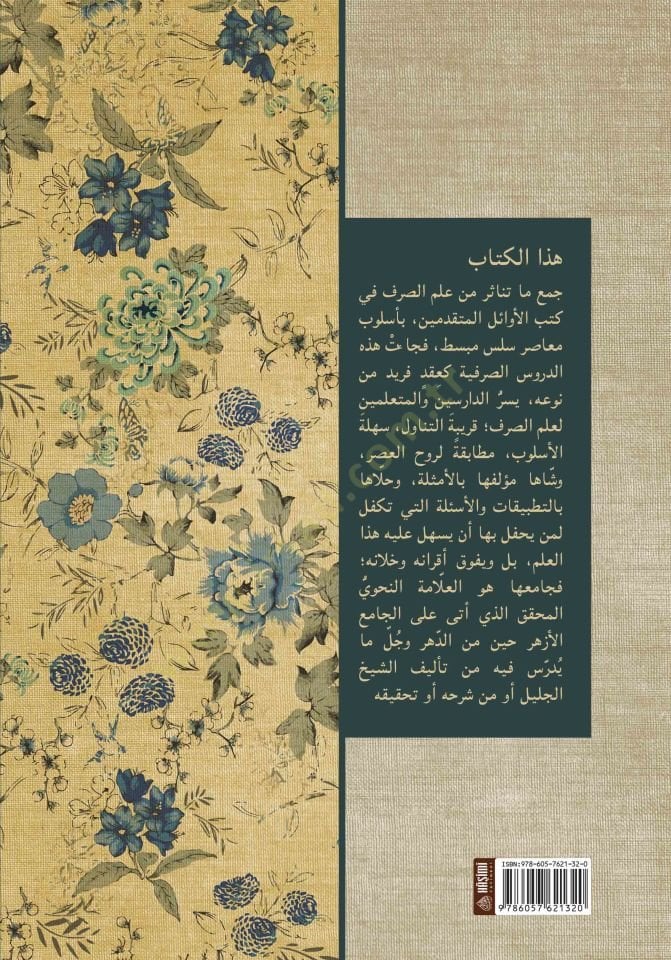 هذا الكتاب
جمع ما تناثر من علم الصرف في
كتب الأوائل المتقدمين، بأسلوب
معاصر سلس مبسط، فجاءتْ هذه
الدروس الصرفية كعقد فريد من
نوعه، يسرُّ الدارسين والمتعلمين
لعلم الصرف؛ قريبةَ التناول، سهلةَ
الأسلوب، مطابقةً لروح العصر،
وشّاها مؤلفها بالأمثلة، وحلّاها
بالتطبيقات والأسئلة التي تكفل
لمن يحفل بها أن يسهل عليه هذا
العلم، بل ويفوق أقرانه وخلانه؛
فجامعها هو العلّامة النحويُّ
المحقق الذي أتى على الجامع
الأزهر حين من الدّهر وجُلّ ما
يُدرّس فيه من تأليف الشيخ
الجليل أو من شرحه أو تحقيقه
ISBN:978-605-7621-32-0
HAŞİMİ
9 786057 621320